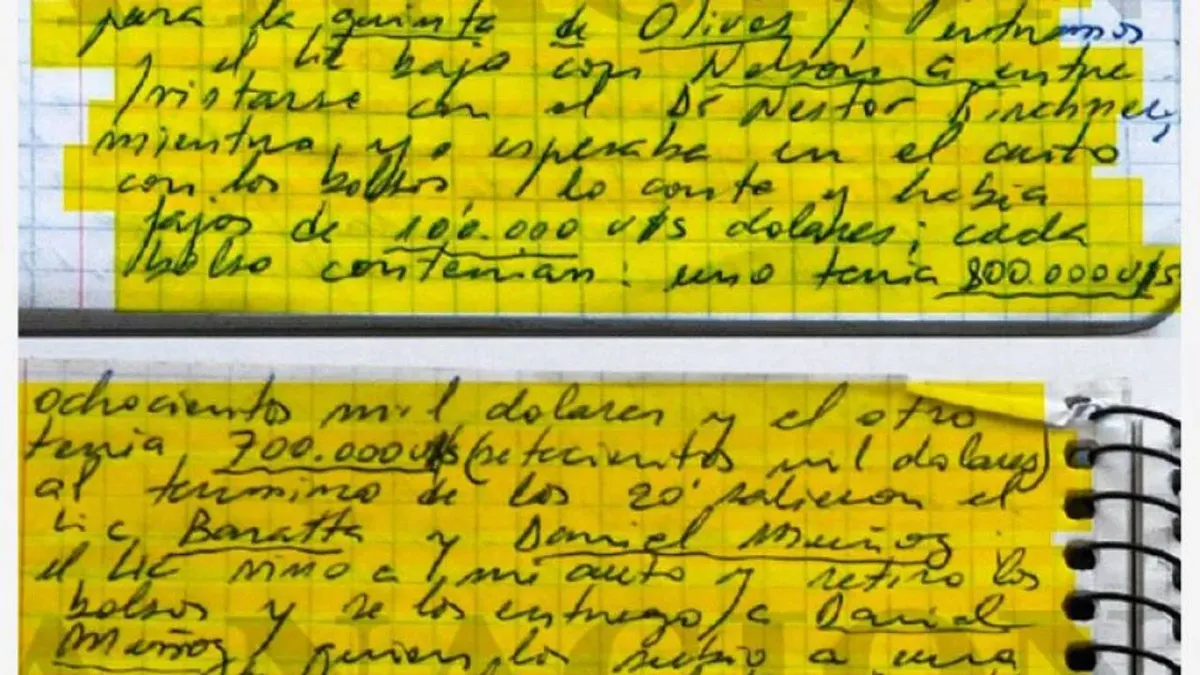 para la quinta de Olivos/; entramos
y el Lic bajo con Nelson a entre
/vistarse con el Dr Nestor Kirchner,
mientras yo esperaba en el auto
con los bolsos, /lo conte y habia
fajos de 100.000 u$s dolares; cada
bolso contenian: uno tenia 800.000 u$s
ochocientos mil dolares y el otro
tenia 700.000 u$s (setecientos mil dolares)
al termino de los 20' salieron el
Lic Baratta y Daniel Muñoz
el Lic vino a mi auto y retiro los
bolsos y se los entrego /a Daniel
Muñoz, quien lo subio a una
NACION